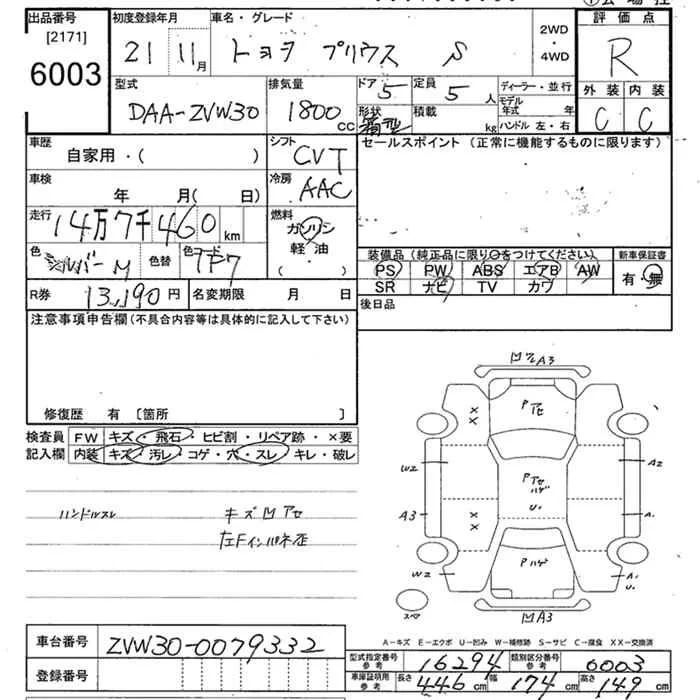 出品番号
[2171]
6003
初度登録年月
21 11月
車名・グレード
トヨタ プリウス S
2WD
・
4WD
評価点
R
外装 内装
C C
型式
DAA-ZVW30
排気量
1800 CC
ドア 5
定員 5 人
形状 箱型
積載 kg
ディーラー・並行
モデル年式 年
ハンドル 左・右
車歴
自家用・( )
シフト
CVT
セールスポイント (正常に機能するものに限ります)
車検
年 月( 日)
冷房
AAC
走行
14万7千460 km
燃料
ガソリン
軽油
( )
色
シルバーM
色替
色コード
1F7
装備品 (純正品に限り○をつけてください)
PS PW ABS エアB AW
SR ナビ TV カワ
新車保証書
有・無
R券 13,190円
名変期限 月 日
後日品
注意事項申告欄 (不具合内容等は具体的に記入して下さい)
修復歴 有 [箇所 ]
検査員 FW キズ・飛石・ヒビ割・リペア跡・×要
記入欄 内装 キズ・汚レ・コゲ・穴・スレ・キレ・破レ
ハンドルスレ
キズ凹アセ
左Fインパネ歪
A3
Pアセ
×
×
W2
A2
Pアセ
ハゲ
U1
A3
×
×
A1
Pハゲ
W2
A1
U1
スペア
凹A3
A-キズ E-エクボ U-凹み W-補修跡 S-サビ C-腐食 XX-交換済
車台番号 ZVW30-0079332
登録番号
型式指定番号 参考 16294
類別区分番号 参考 0003
車庫証明用 参考 長さ 446 cm 幅 174 cm 高さ 149 cm